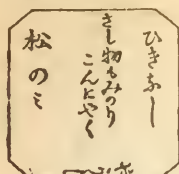 ひきふし
さし物もみのり
こんにやく
松のミ